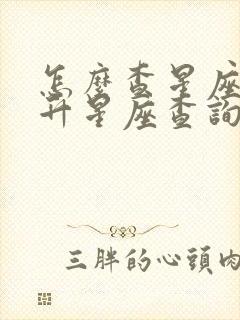 怎麼查星座
升星座查詢
三胖的心頭肉